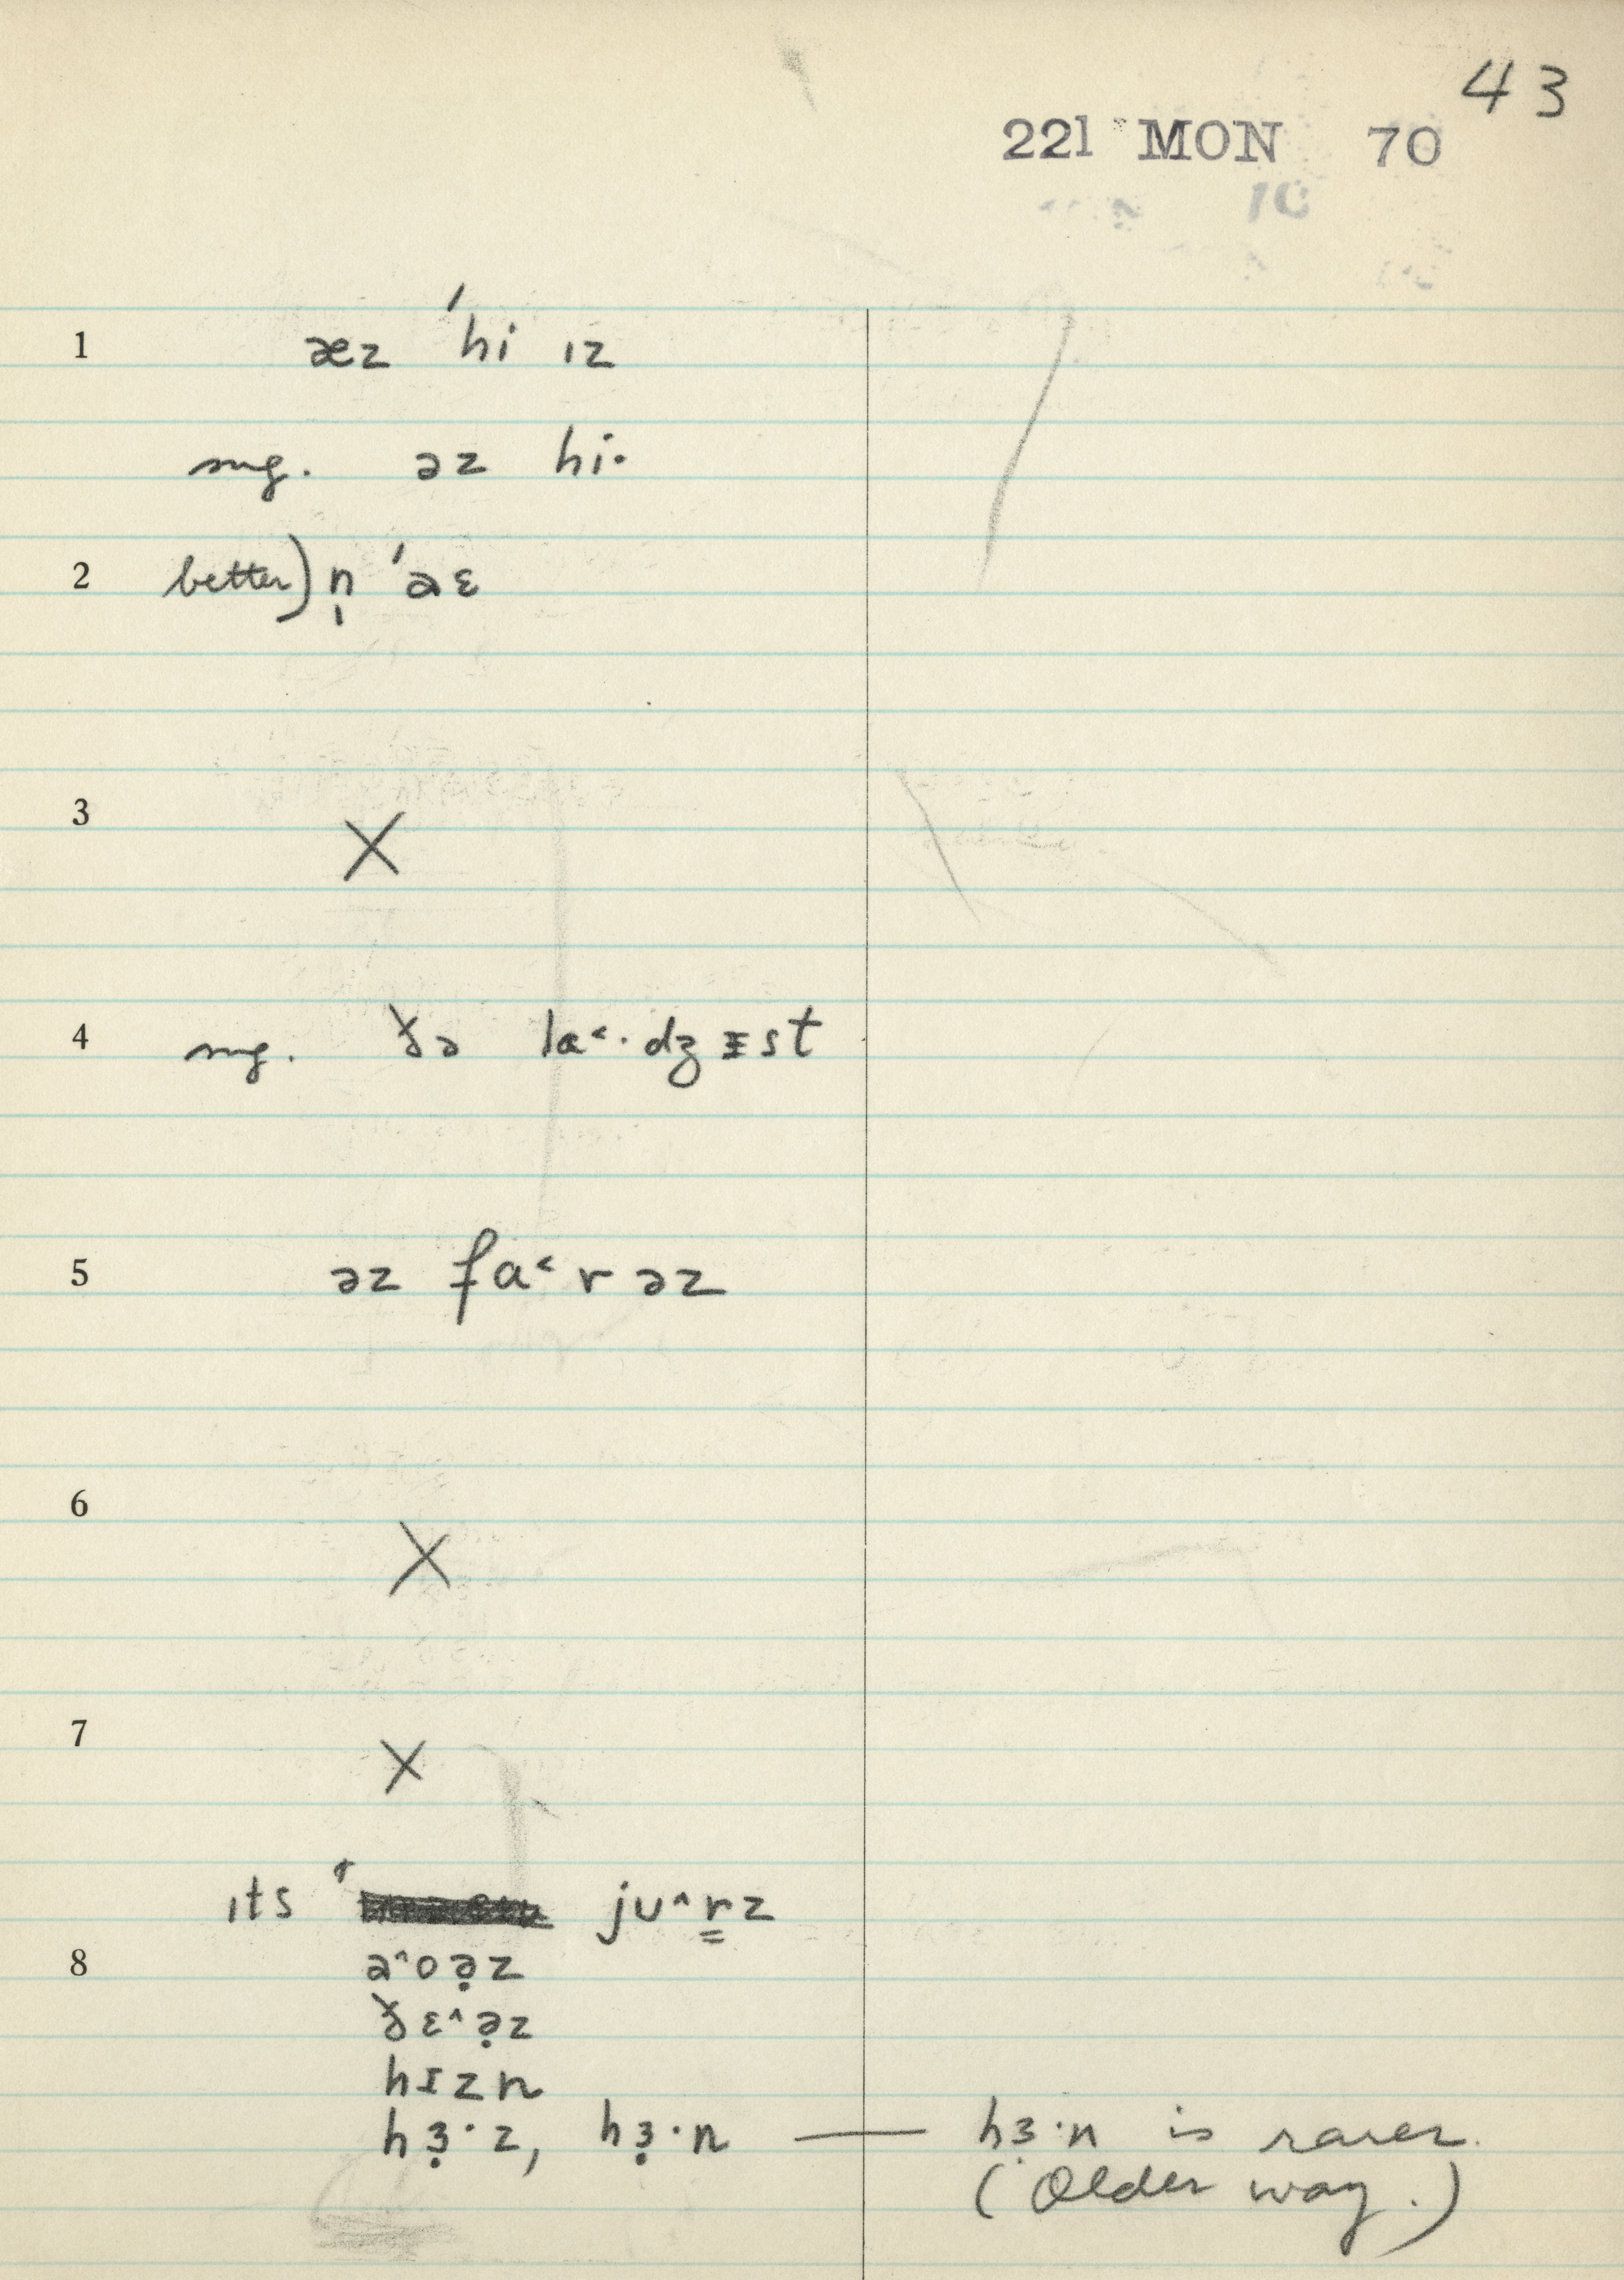 43
221 MON 70
10
1 æz 'hi ɪz
sug. əz hi·
2 better) n̩ 'aɛ
3 X
4 sug. ðə la˂·dʒɪst
5 əz fa˂rəz
6 X
7 X
ɪts ju^r̳z
8 a^oə̣z
ðɛ^ə̣z
hɪzn
hɜ̣·z, hɜ̣·n — hɜ̣·n is rarer.
(Older way.)